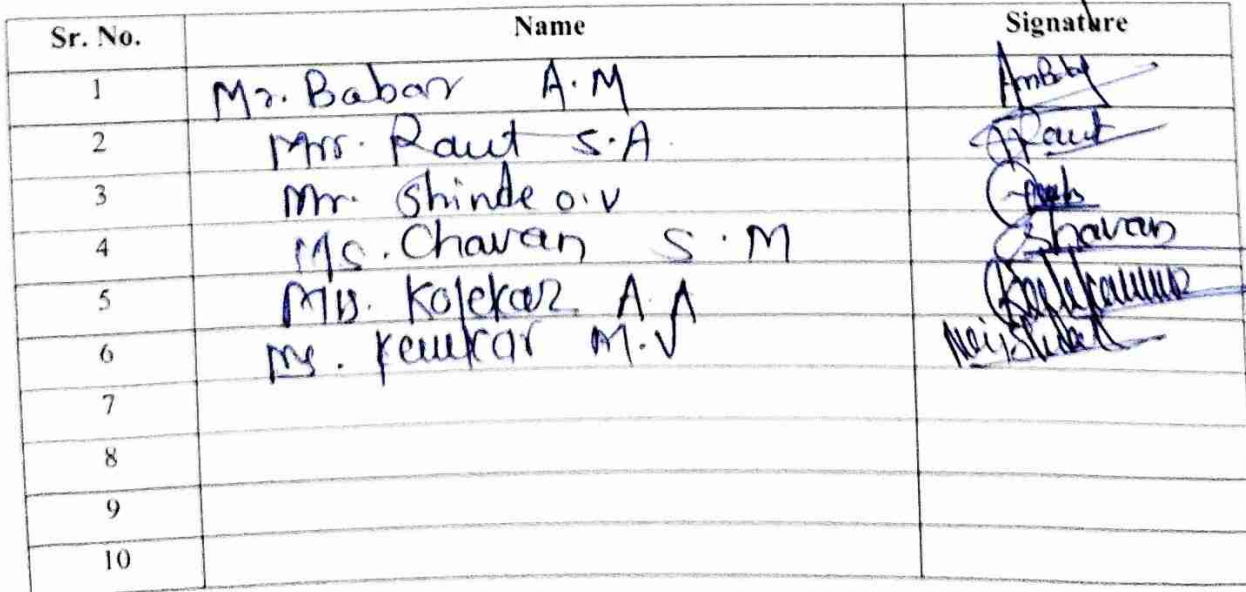 Sr. No. Name Signature
1 Mr. Babar A.M AmBabar
2 Mrs. Raut S.A. SRaut
3 Mr. Shinde O.V
4 Ms. Chavan S.M Chavan
5 Ms. Kolekar A.A
6 Ms. M.V
7
8
9
10